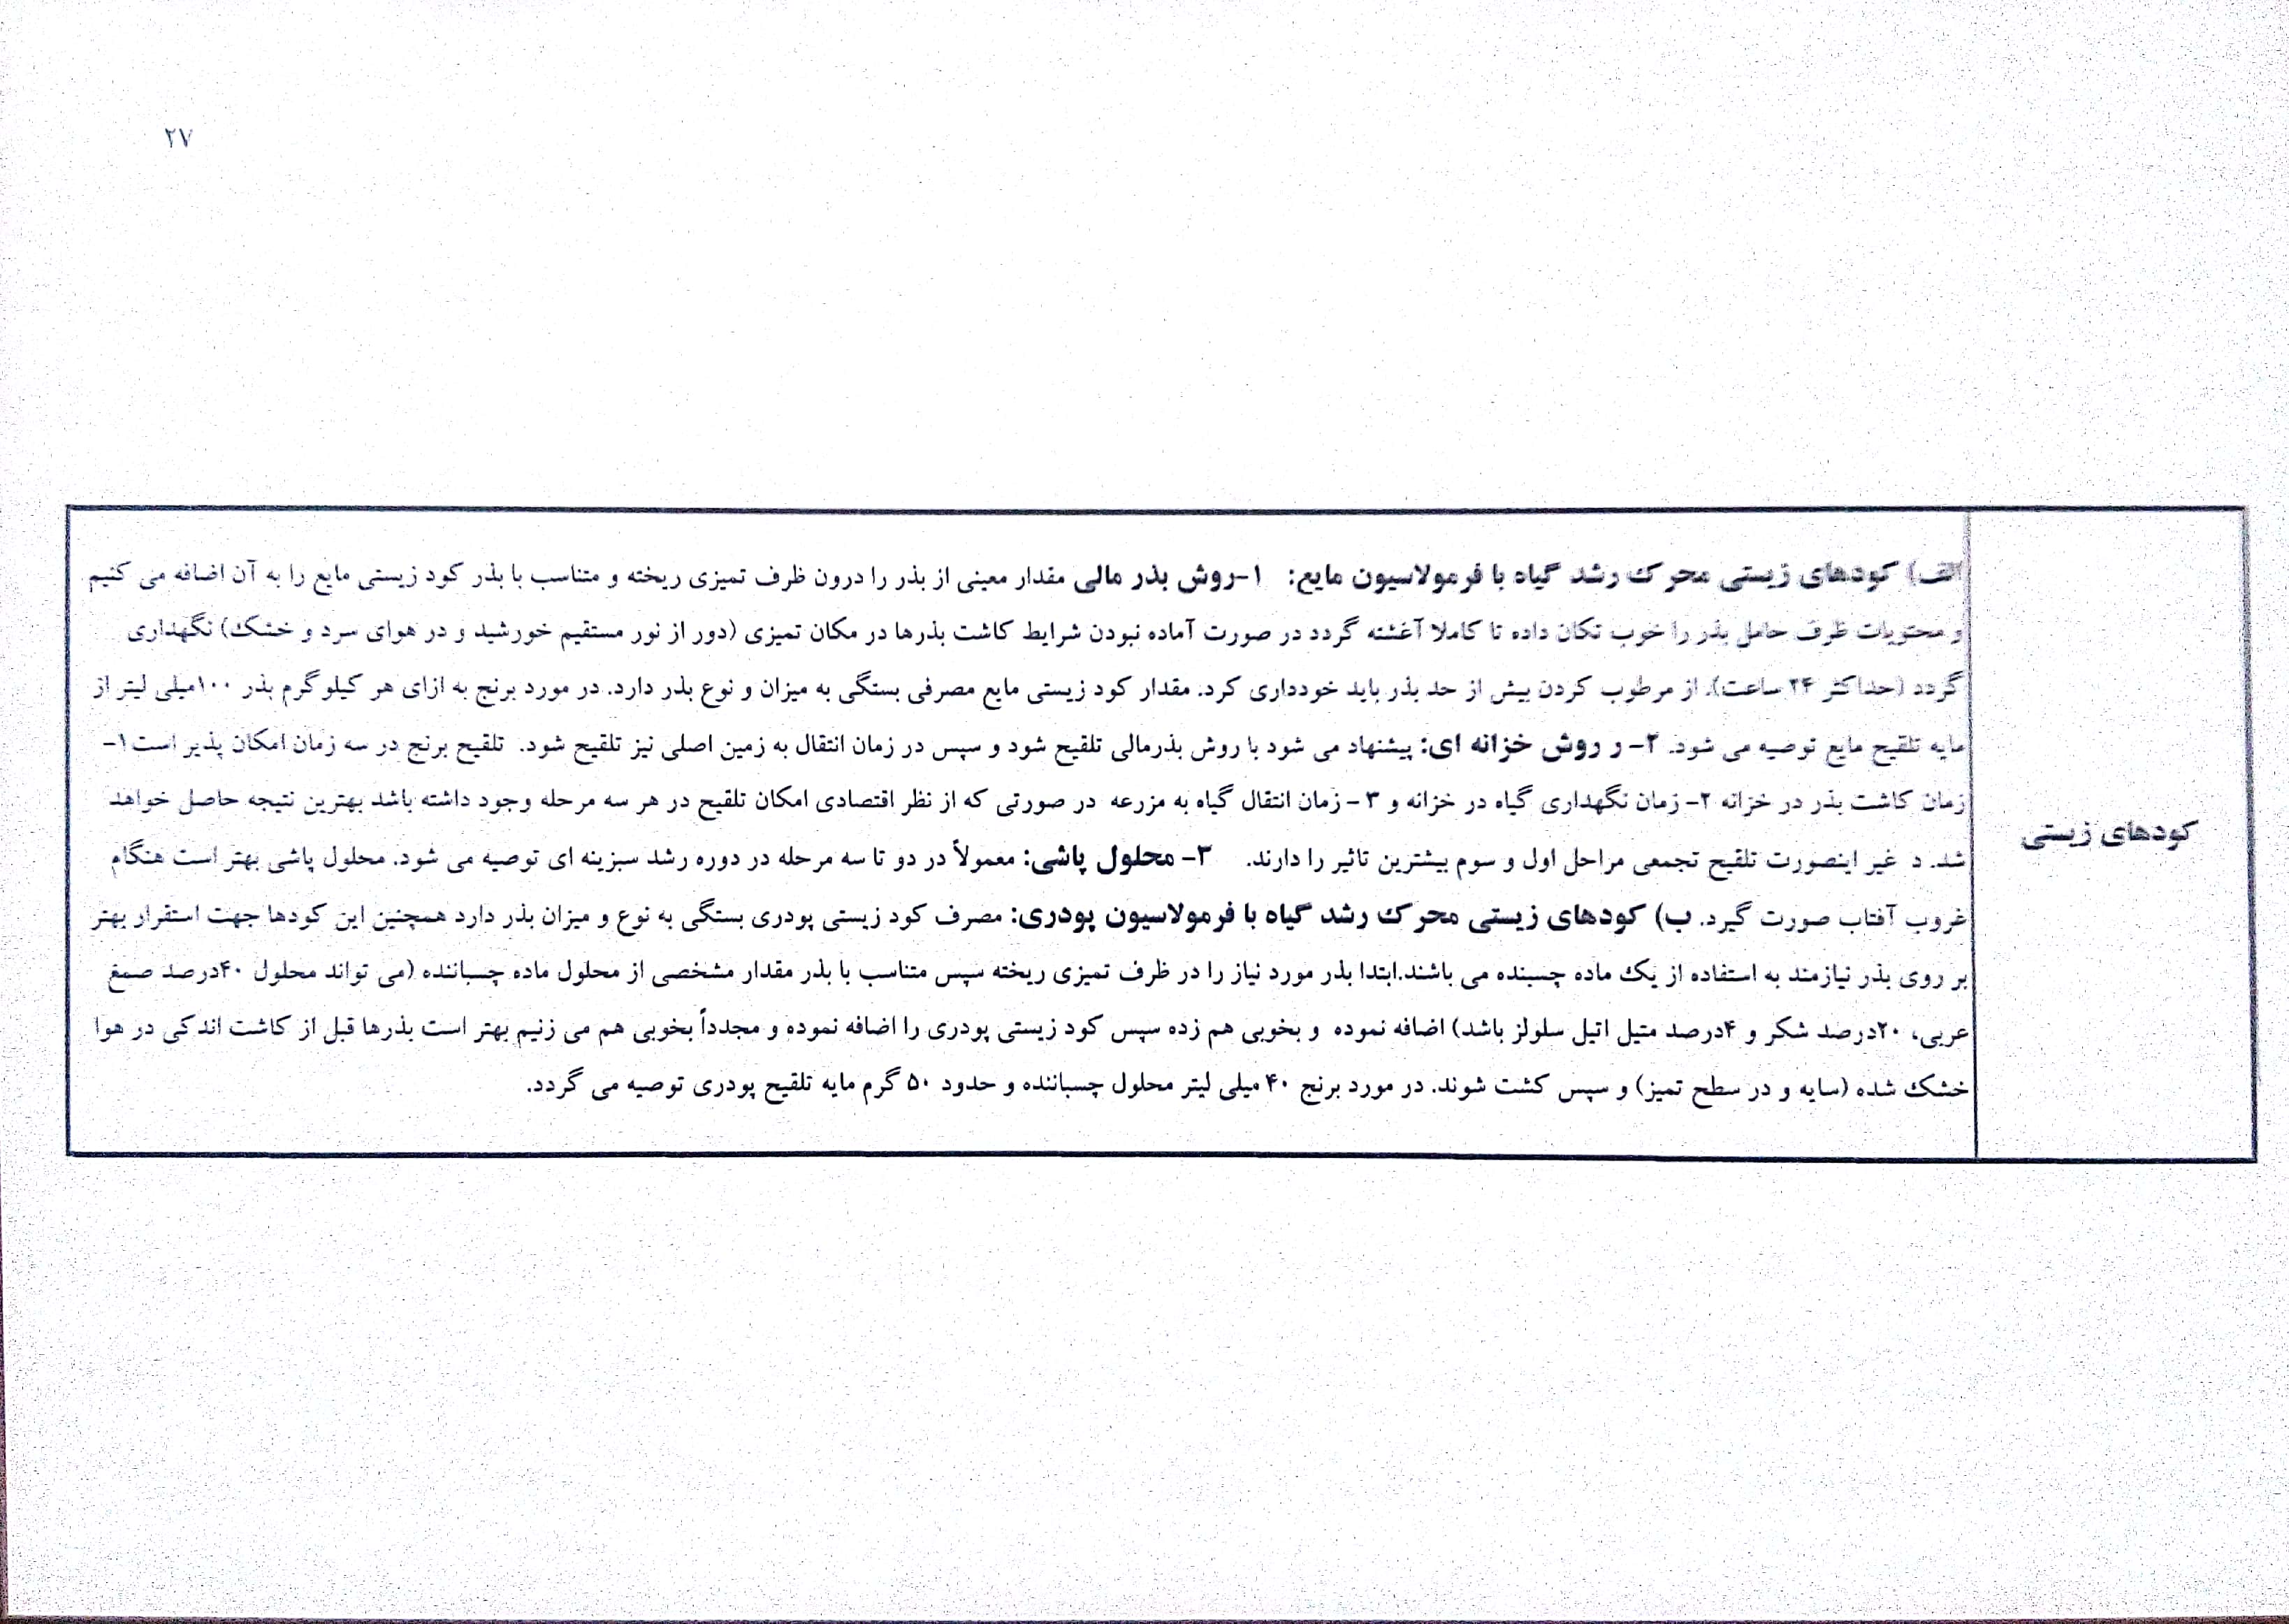 ۲۷
کودهای زیستی
الف) کودهای زیستی محرک رشد گیاه با فرمولاسیون مایع: ۱-روش بذر مالی مقدار معینی از بذر را درون ظرف تمیزی ریخته و متناسب با بذر کود زیستی مایع را به آن اضافه می کنیم
و محتویات ظرف حامل بذر را خوب تکان داده تا کاملا آغشته گردد در صورت آماده نبودن شرایط کاشت بذرها در مکان تمیزی (دور از نور مستقیم خورشید و در هوای سرد و خشک) نگهداری
گردد (حداکثر ۲۴ ساعت). از مرطوب کردن بیش از حد بذر باید خودداری کرد. مقدار کود زیستی مایع مصرفی بستگی به میزان و نوع بذر دارد. در مورد برنج به ازای هر کیلوگرم بذر ۱۰۰میلی لیتر از
مایه تلقیح مایع توصیه می شود. ۲- ر روش خزانه ای: پیشنهاد می شود با روش بذرمالی تلقیح شود و سپس در زمان انتقال به زمین اصلی نیز تلقیح شود. تلقیح برنج در سه زمان امکان پذیر است۱-
زمان کاشت بذر در خزانه ۲- زمان نگهداری گیاه در خزانه و ۳- زمان انتقال گیاه به مزرعه در صورتی که از نظر اقتصادی امکان تلقیح در هر سه مرحله وجود داشته باشد بهترین نتیجه حاصل خواهد
شد. د غیر اینصورت تلقیح تجمعی مراحل اول و سوم بیشترین تاثیر را دارند. ۳- محلول پاشی: معمولاً در دو تا سه مرحله در دوره رشد سبزینه ای توصیه می شود. محلول پاشی بهتر است هنگام
غروب آفتاب صورت گیرد. ب) کودهای زیستی محرک رشد گیاه با فرمولاسیون پودری: مصرف کود زیستی پودری بستگی به نوع و میزان بذر دارد همچنین این کودها جهت استقرار بهتر
بر روی بذر نیازمند به استفاده از یک ماده چسبنده می باشند.ابتدا بذر مورد نیاز را در ظرف تمیزی ریخته سپس متناسب با بذر مقدار مشخصی از محلول ماده چسباننده (می تواند محلول ۴۰درصد صمغ
عربی، ۲۰درصد شکر و ۴درصد متیل اتیل سلولز باشد) اضافه نموده و بخوبی هم زده سپس کود زیستی پودری را اضافه نموده و مجدداً بخوبی هم می زنیم بهتر است بذرها قبل از کاشت اندکی در هوا
خشک شده (سایه و در سطح تمیز) و سپس کشت شوند. در مورد برنج ۴۰ میلی لیتر محلول چسباننده و حدود ۵۰ گرم مایه تلقیح پودری توصیه می گردد.